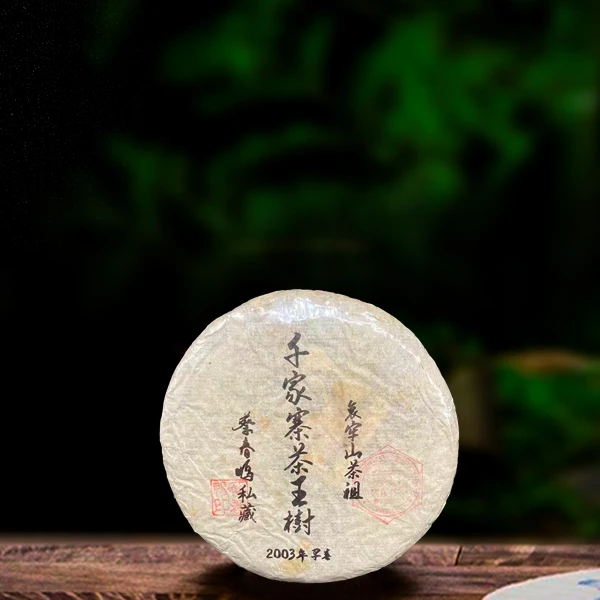 哀牢山茶祖
千家寨茶王樹
蔡春鳴私藏
2003年早春